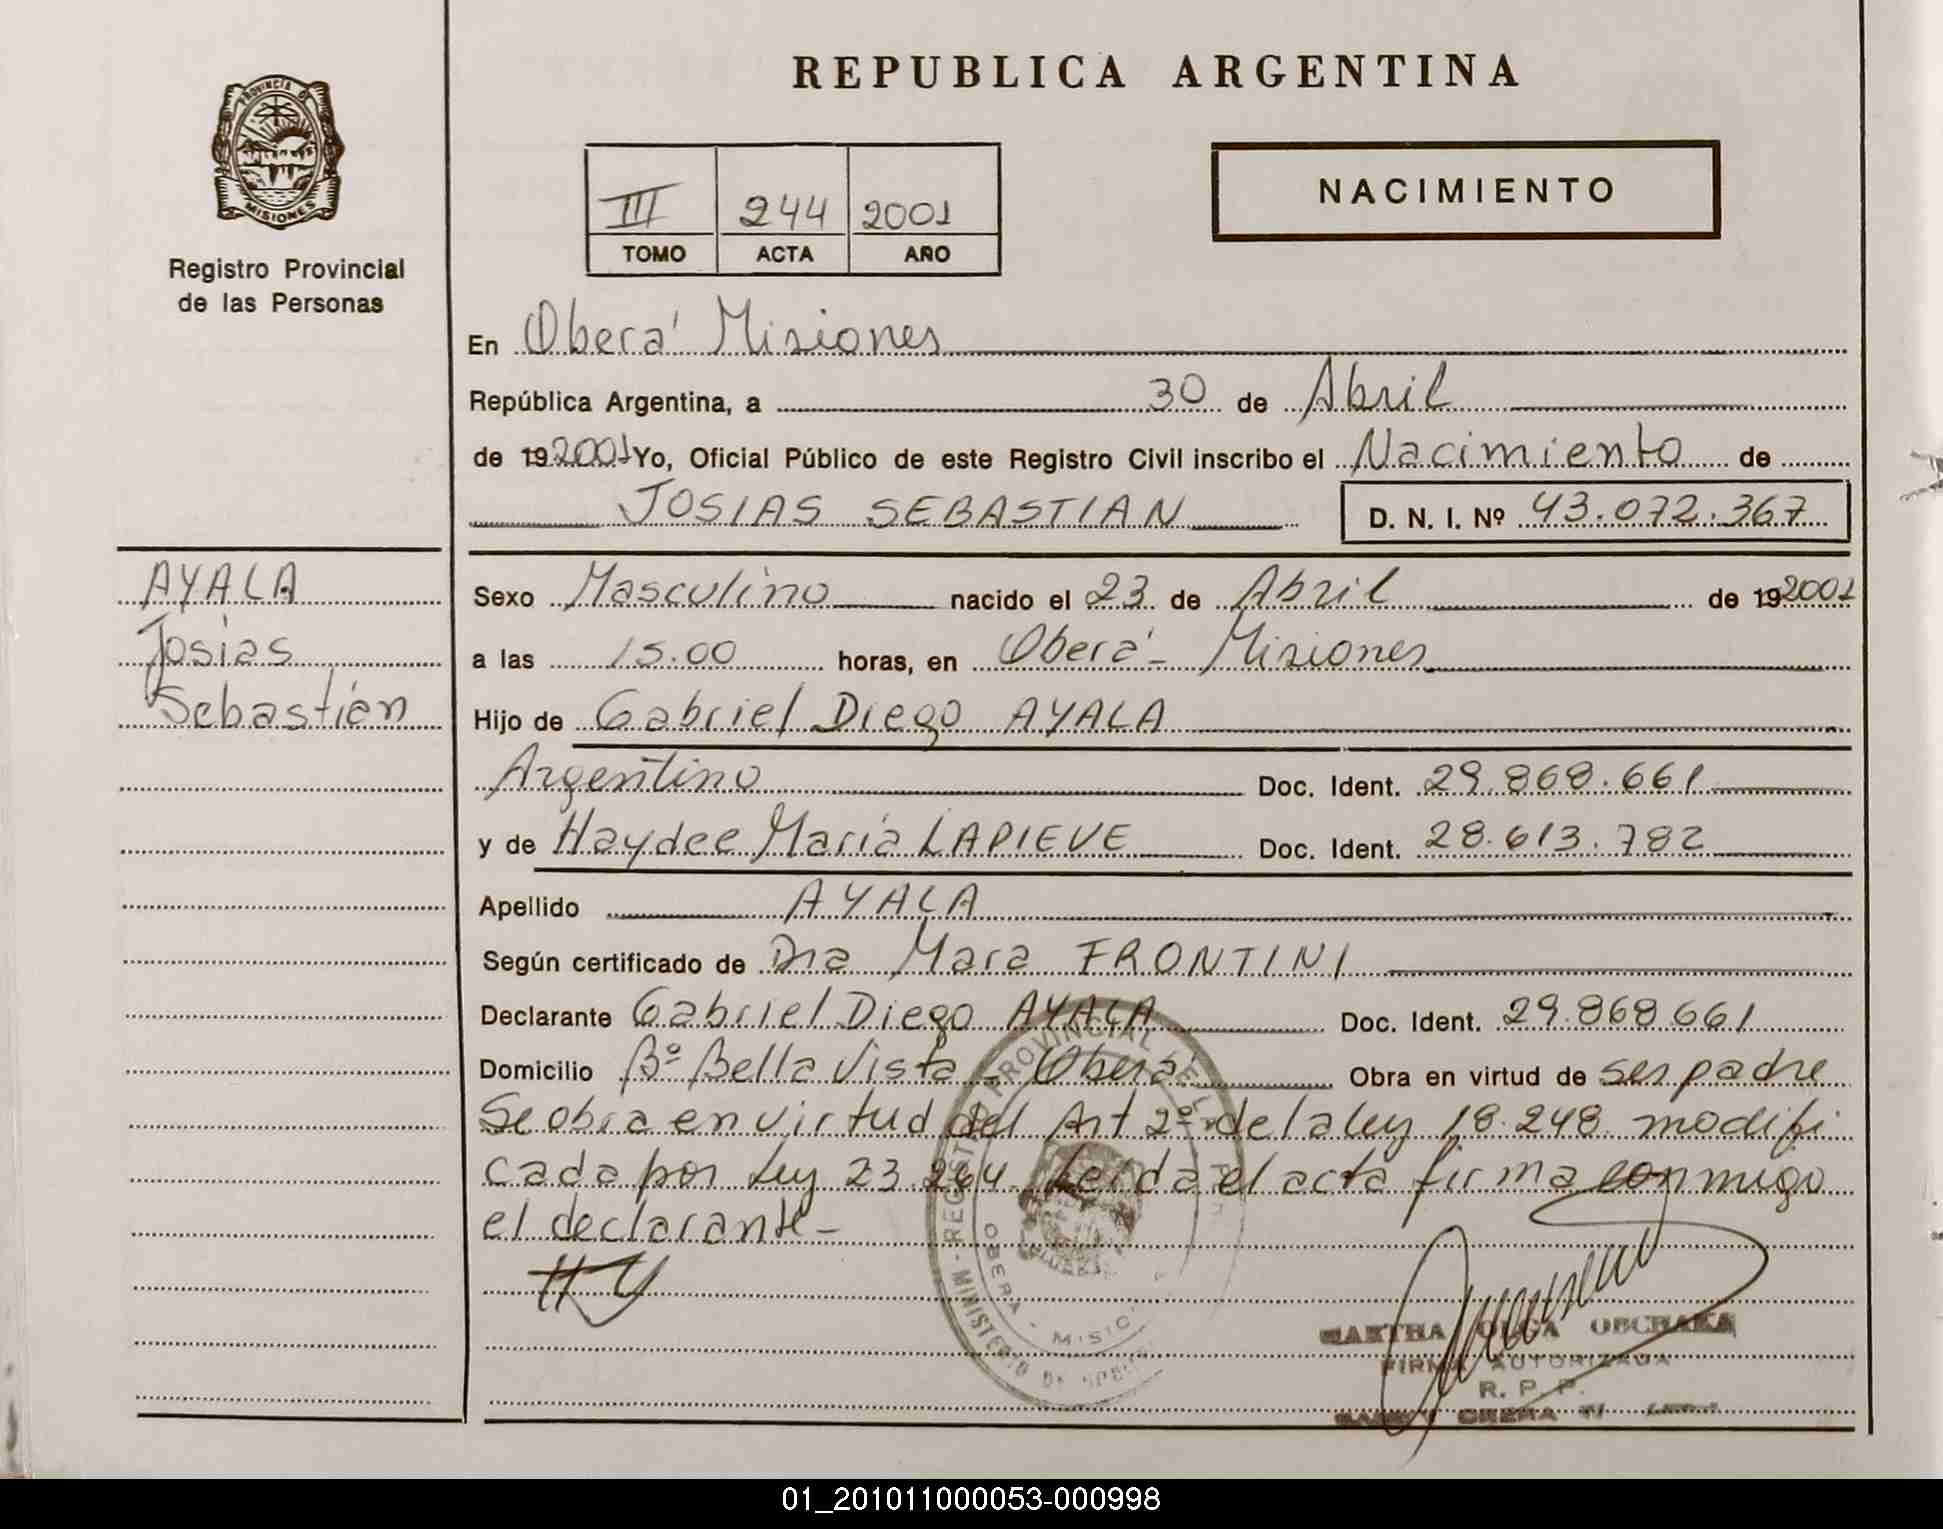 PROVINCIA DE
MISIONES
Registro Provincial
de las Personas
REPUBLICA ARGENTINA
III 244 2001
TOMO ACTA AÑO
NACIMIENTO
En Oberá Misiones
República Argentina, a 30 de Abril
de 192001 Yo, Oficial Público de este Registro Civil inscribo el Nacimiento de
JOSIAS SEBASTIAN D. N. I. Nº 43.072.367
AYALA
Josias
Sebastián
Sexo Masculino nacido el 23 de Abril de 192001
a las 15.00 horas, en Oberá - Misiones
Hijo de Gabriel Diego AYALA
Argentino Doc. Ident. 29.868.661
y de Haydee María LAPIEVE Doc. Ident. 28.613.782
Apellido AYALA
Según certificado de Dra Mara FRONTINI
Declarante Gabriel Diego AYALA Doc. Ident. 29.868661
Domicilio Bº Bella Vista - Oberá Obra en virtud de ser padre
Se obra en virtud del Art 2º de la ley 18.248 modifi
cada por Ley 23.264. Leida el acta firma conmigo
el declarante -
REGISTRO PROVINCIAL DE LA
MINISTERIO DE
OBERA - MISIO
MARTHA OLGA
FIRMA AUTORIZADA
R. P. P.
01_201011000053-000998